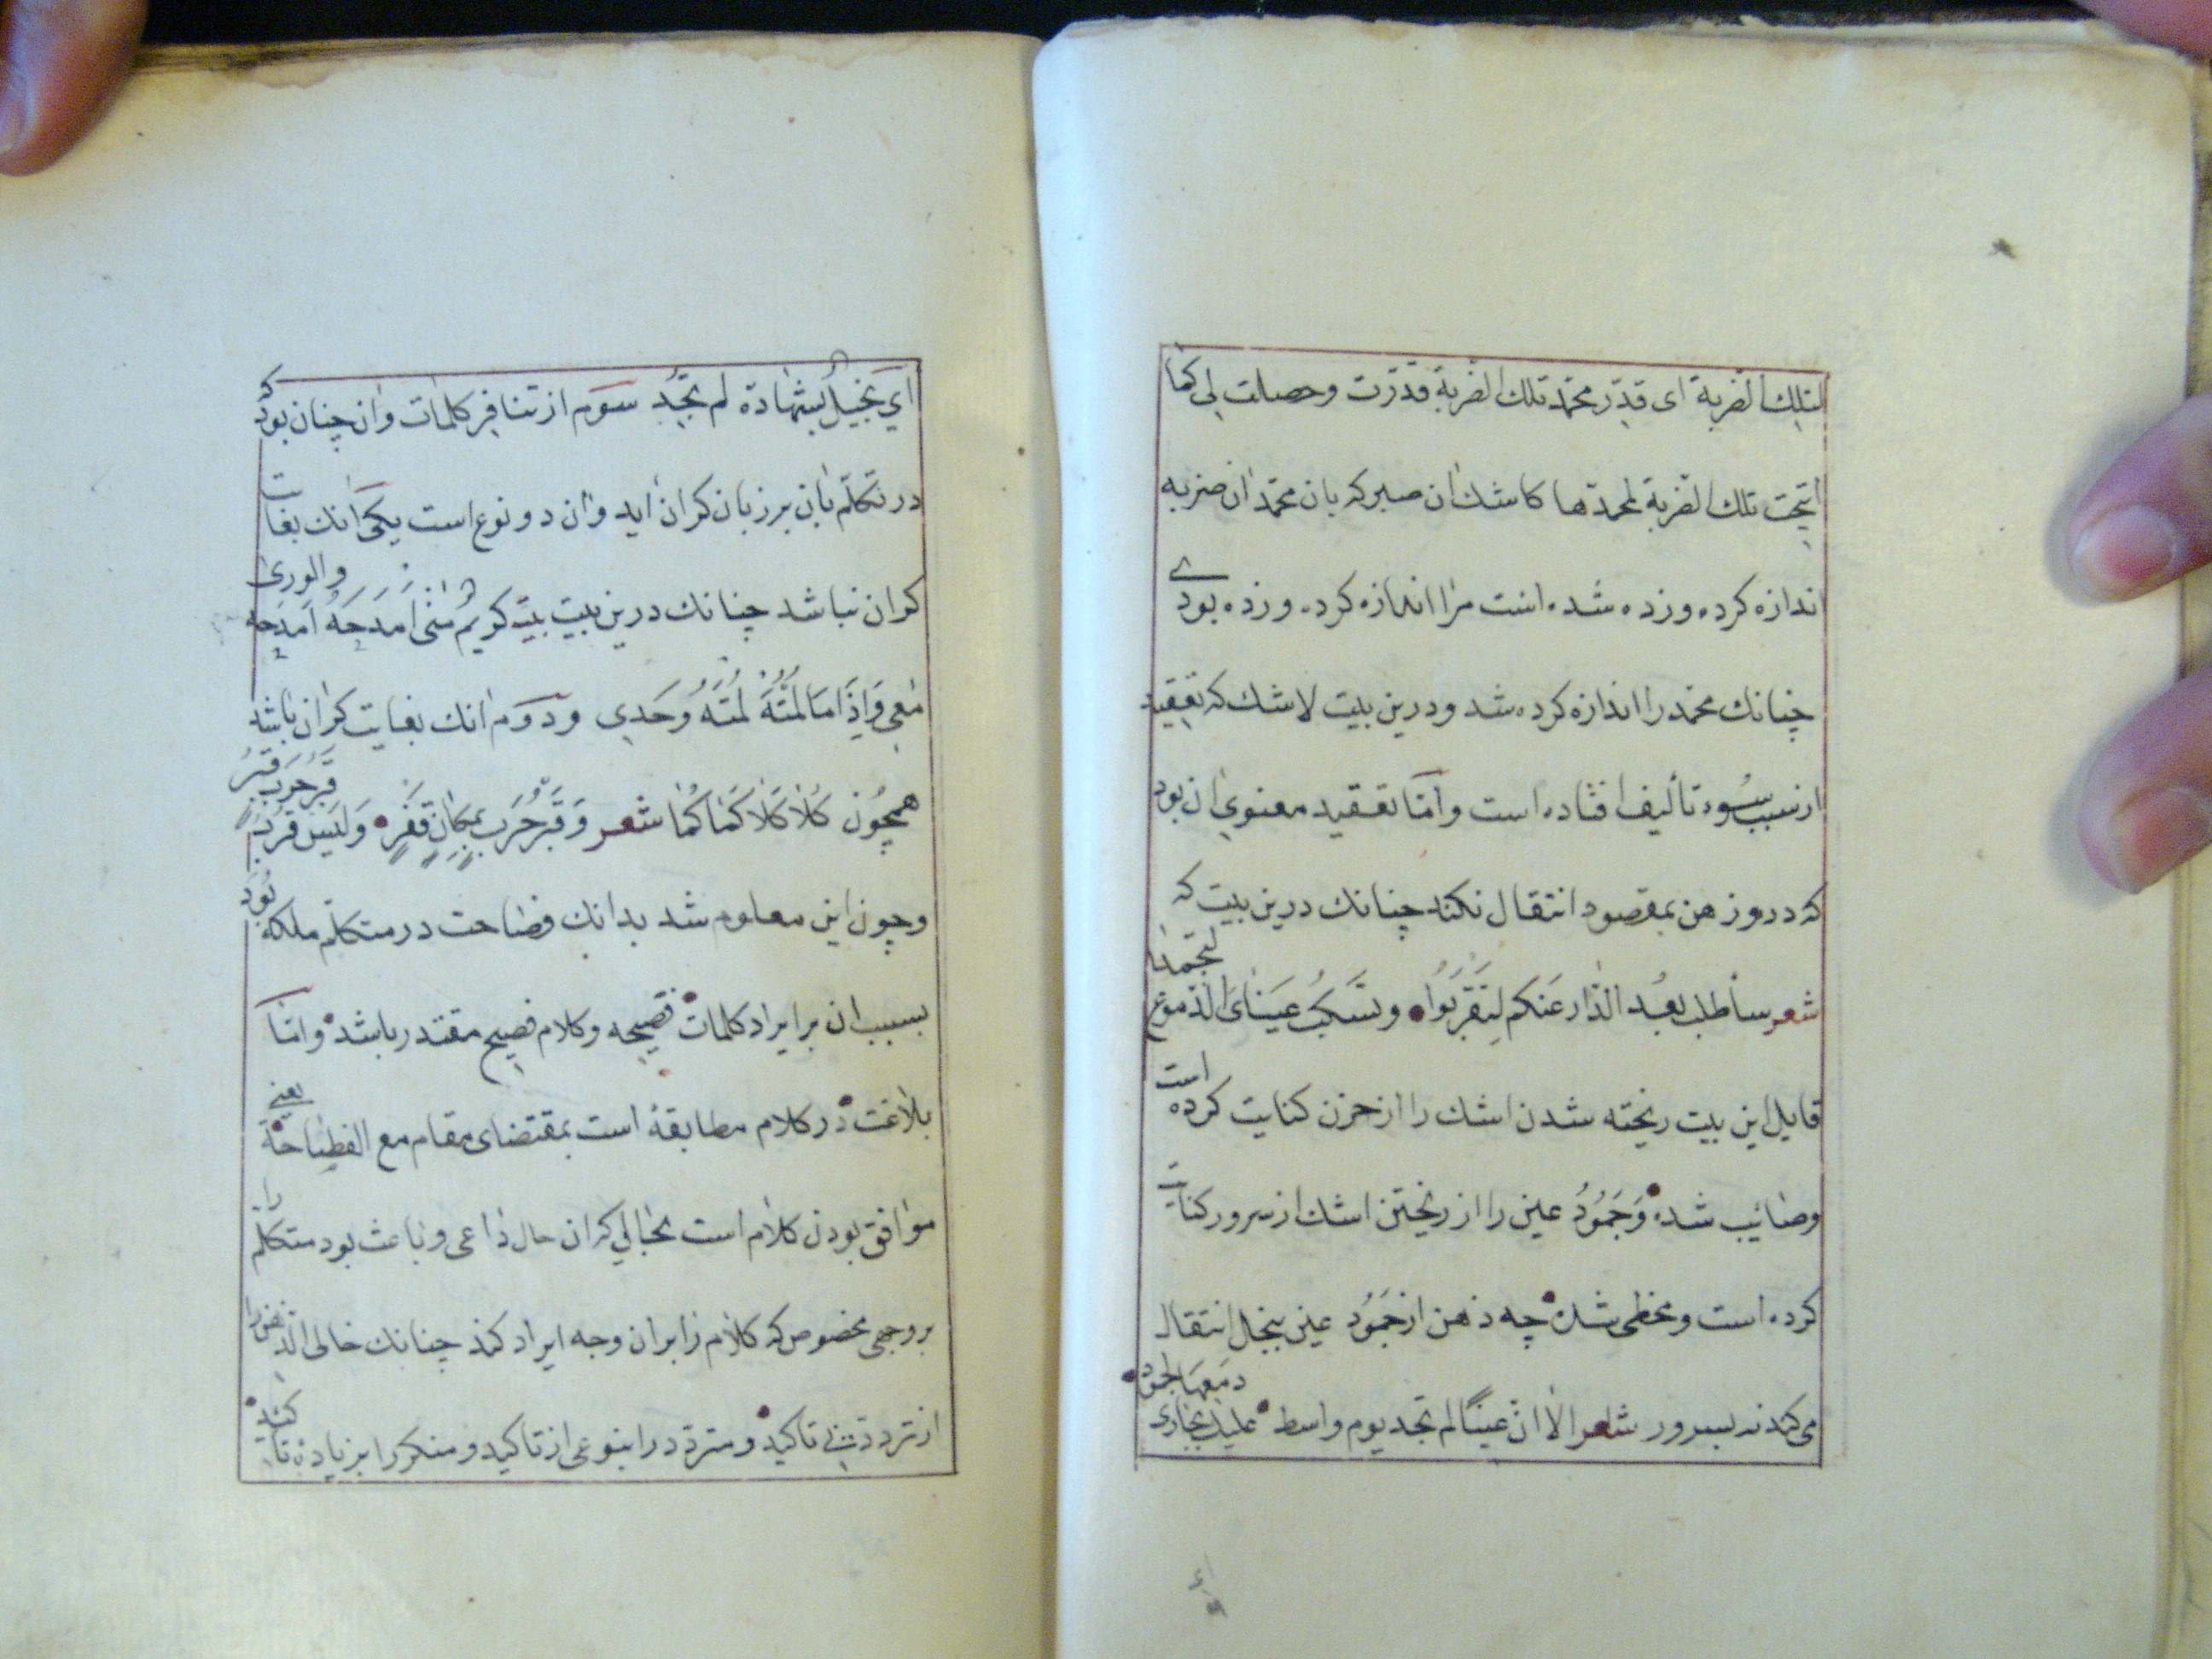 لتلك الضربة ای قدّر محمّد تلك الضربة قدّرت وحصلت لی كما
اتیحت تلك الضربة لمحمدها كاشك ان صبر كه بان محمّد ان ضربه
اندازه كرده وزده شده است مرا اندازه كرده وزده بودی
چنانك محمّد را اندازه كرده شد ودرین بیت لاشك كه تعقید
از سبب سُوء تألیف افتاده است وامّا تعقید معنوی ان بود
كه درو ذهن بمقصود انتقال نكند چنانك درین بیت كه
شعر سأطلب بعُد الدّار عَنكم لِتَقرَبُوا وتسكُبُ عینَایَ الدّموعَ لتجمدا
قایل این بیت ریخته شدن اشك را از حزن كنایت كرده است
وصائب شده وَجَمُودُ عین را از ریختن اشك از سرور كنایت
كرده است ومخطی شده چه ذهن از جَمُود عین ببخل انتقال
می كند نه بسرور شعر الا انّ عینًا لم تجد یوم واسط علیك بجاری دمعها لجمود
ای بخیلٌ بشهادة لم تجُد سوم از تنافر كلمات وان چنان بود كه
در تكلّم بان بر زبان كران اید وان دو نوع است یكی انك بغایت
كران نباشد چنانك درین بیت بیت كریمٌ مَتٰی اَمدَحهُ اَمدَحه والوریٰ
مَعِی وَاِذَا مَا لُمتُهُ لُمتُهُ وَحدِی ودوم انك بغایت كران باشد
همچون كَلاَ كَلاَ كَمَا كَمَا شعر وَقَبرُ حَربٍ بِمَكَانٍ قَفرٍ وَلَیسَ قُربَ قَبرِ حَربٍ قَبرُ
وچون این معلوم شد بدانك فصاحت در متكلّم ملكه بُوَد
بسبب ان بر ایراد كلمات فصیحه وكلام فصیح مقتدر باشد وامّا
بلاغت در كلام مطابقهٔ است بمقتضای مقام مع الفصاحة یعنی
موافق بودن كلام است بحالی كه ان حال داعی وباعث بود متكلّم را
بر وجهی مخصوص كه كلام را بران وجه ایراد كند چنانك خالی الذّهن را
از تردد بی تاكید ومتردّد را بنوعی از تاكید ومنكر را بزیادة تاكید